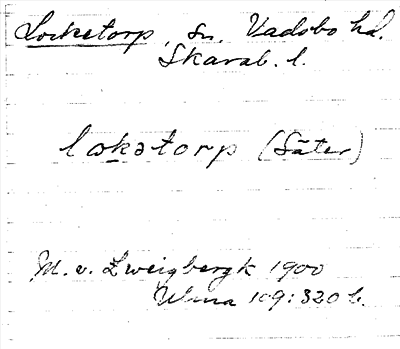 Locketorp, sn. Vadsbo hd.
Skarab. l.
låkətorp (Säter)
M. v. Zweigbergk 1900
109:320 b.